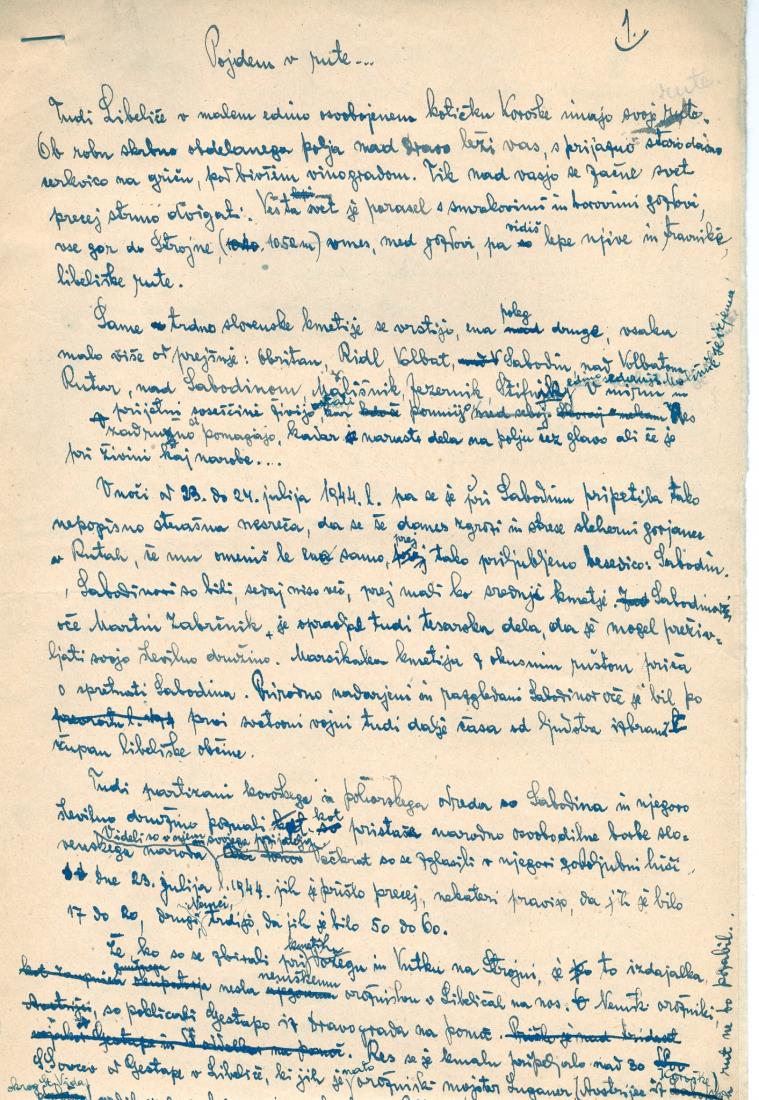 1.
Pojdem v rute...
rute.
Tudi Libeliče v malem edino osvobojenem kotičku Koroške imajo svoje rute.
Ob robu skrbno obdelanega polja nad Dravo leži vas, s prijazno starodavno
cerkvico na griču, pod bivšim vinogradom. Tik nad vasjo se začne svet
precej strmo dvigati. Ves ta svet je porasel s smrekovimi in borovimi gozdovi,
vse gor do Strojne, (1052 m) vmes, med gozdovi, pa vidiš lepe njive in travnike,
libeliške rute.
Same trdno slovenske kmetije se vrstijo, ena poleg druge, vsaka
malo više od prejšnje: Obritan, Ridl Volbat, Sabodin, nad Volbatom
Rutar, nad Sabodinom, Jezernik, Štifnik, V mirnem in
prijetni soseščini živijo, pomnijo
si pomagajo, kadar je naraste dela na polju čez glavo ali če je
pri živini kaj narobe...
V noči od 23. do 24. julija 1944. l. pa se je pri Sabodinu pripetila tako
nepopisno strašna nesreča, da se še danes zgrozi in strese sleherni gorjanec
v Rutah, če mu omeniš le eno samo, prej tako priljubljeno besedico: Sabodin.
Sabodinovi so bili, sedaj niso več, prej mali ko srednji kmetje. Sabodinov
oče Martin Zabrčnik, je opravljal tudi tesarska dela, da je mogel preživ-
ljati svojo številno družino. Marsikaka kmetija z okusnim ruštom priča
o spretnosti Sabodina. Prirodno nadarjeni in razgledani Sabodinov oče je bil po
prvi svetovni vojni tudi dalje časa od ljudstva izbran
župan libeliške občine.
Tudi partizani koroškega in pohorskega odreda so Sabodina in njegovo
številno družino poznali kot pristaše narodno osvobodilne borbe slo-
venskega naroda Videli so v njem svojega prijatelja. Večkrat so se zglasili v njegovi gostoljubni hiši.
dne 23. julija 1944. jih je prišlo precej, nekateri pravijo, da jih je bilo
17 do 20, drugi, Nemci, trdijo, da jih je bilo 50 do 60.
Že ko so se zbirali pri kmetih Ožegu in Vutku na Strojni, je to izdajalka
nesla nemškim orožnikom v Libeličah na nos. Nemški orožniki
so poklicali Gestapo iz Dravograda na pomoč.
Res se je kmalu pripeljalo nad 30
od Gestape v Libeliče, ki jih je nato orožniški mojster